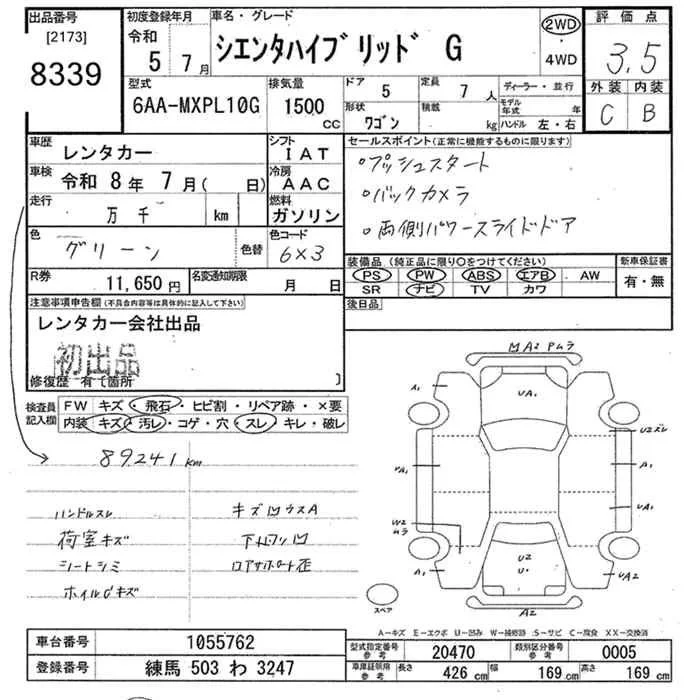 出品番号
[2173]
8339
初度登録年月
令和
5 7月
車名・グレード
シエンタハイブリッド G
2WD
・
4WD
評価点
3.5
外装 内装
C B
型式
6AA-MXPL10G
排気量
1500
CC
ドア
5
形状
ワゴン
定員
7 人
積載
kg
ディーラー・並行
モデル年式 年
ハンドル 左・右
車歴
レンタカー
シフト
IAT
車検
令和 8年 7月( 日)
冷房
AAC
走行
万 千 km
燃料
ガソリン
色
グリーン
色替
色コード
6×3
R券
11,650 円
名変通知期限
月 日
セールスポイント(正常に機能するものに限ります)
○プッシュスタート
○バックカメラ
○両側パワースライドドア
装備品(純正品に限り○をつけてください)
PS PW ABS エアB AW
SR ナビ TV カワ
新車保証書
有・無
後日品
注意事項申告欄(不具合内容等は具体的に記入して下さい)
レンタカー会社出品
初出品
修復歴 有〔箇所 〕
検査員
記入欄
FW キズ・飛石・ヒビ割・リペア跡・×要
内装 キズ・汚レ・コゲ・穴・スレ・キレ・破レ
89241km
ハンドルスレ
荷室キズ
シートシミ
ホイルCキズ
キズ凹ウスA
下廻り凹
凹A2 Pムラ
A1
UA1
U2ズレ
UA1
A1
UA1
W2
ムラ
A1
U2
U・
UA2
A2
スペア
A−キズ E−エクボ U−凹み W−補修跡 S−サビ C−腐食 XX−交換済
車台番号
1055762
登録番号
練馬 503 わ 3247
型式指定番号
参考
20470
類別区分番号
参考
0005
車庫証明用
参考
長さ
426 cm
幅
169 cm
高さ
169 cm